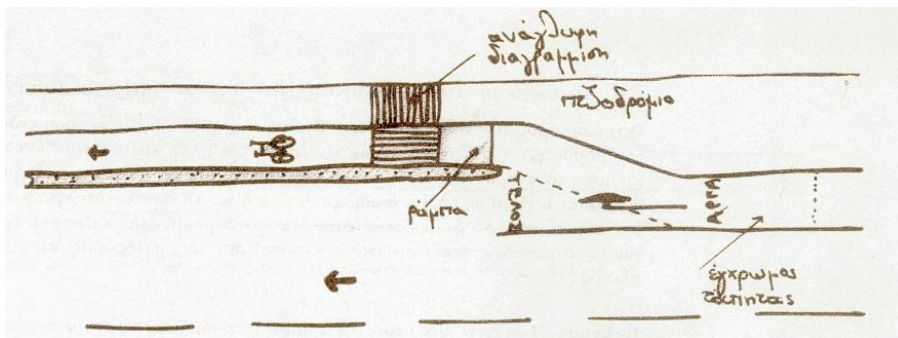 ανάγλυφη
διαγράμμιση
πεζοδρόμιο
ράμπα
ΑΡΓΑ
έγχρωμος
τάπητας